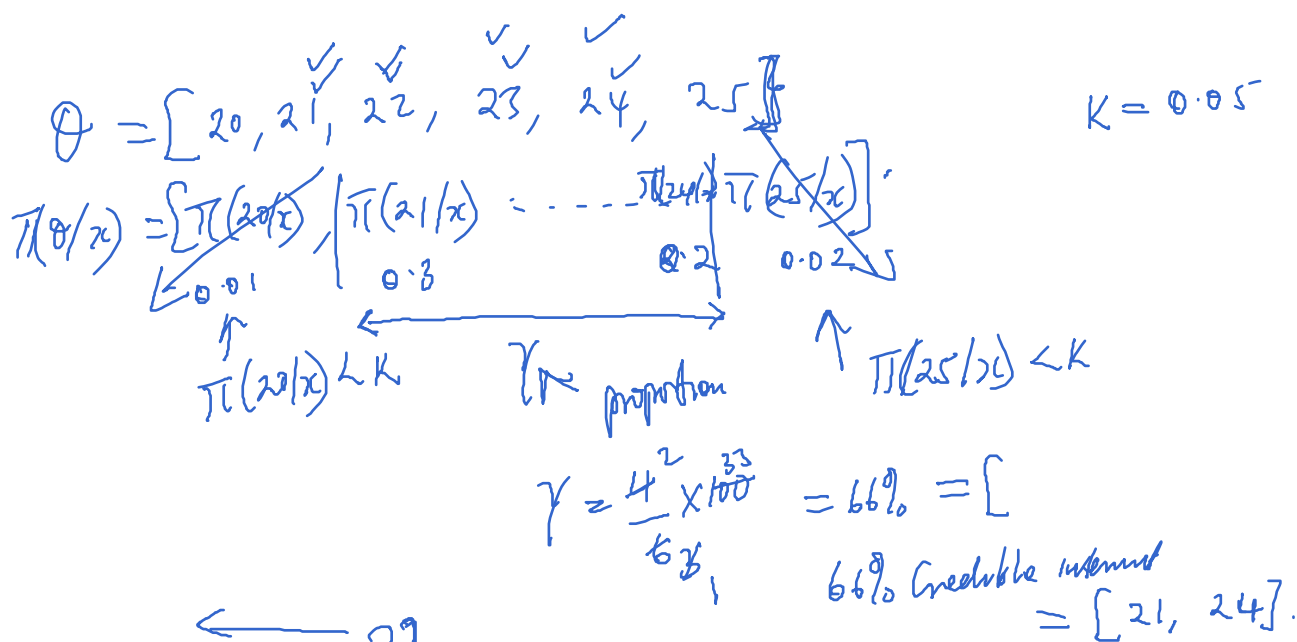 θ = [20, 21, 22, 23, 24, 25]
K = 0.05
π(θ/x) = [π(20/x), π(21/x) ------ π(24/x) π(25/x)].
0.01 0.3 0.2 0.02
π(20/x) < K γ proportion π(25/x) < K
γ = 4 2 / 6 3 1 × 100 33 = 66% = [
66% Credible interval
= [21, 24].